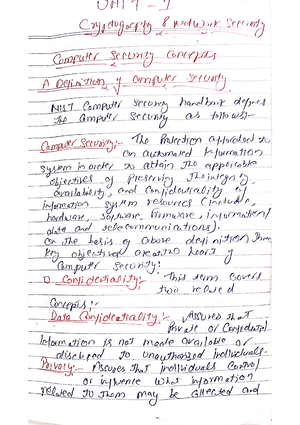 UNIT - 1
Cryptography & Network Security
Computer Security Concepts
A Definition of Computer Security
NIST Computer Security handbook defines
the Computer Security as follows:-
Computer Security:- The Protection afforded to
an automated Information
System in order to attain the applicable
objectives of Preserving The integrity
availability and Confidentiality of
information system resources (include,
hardware, Software, firmware, information/
data and telecommunications).
On the basis of above definition three
key objectives are at the heart of
Computer Security:
1) Confidentiality:- This term covers
two related
Concepts:-
Data Confidentiality:- Assures that
Private or Confidential
Information is not made available or
disclosed to unauthorized individuals.
Privacy:- Assures that individuals Control
or influence what information
related to them may be collected and